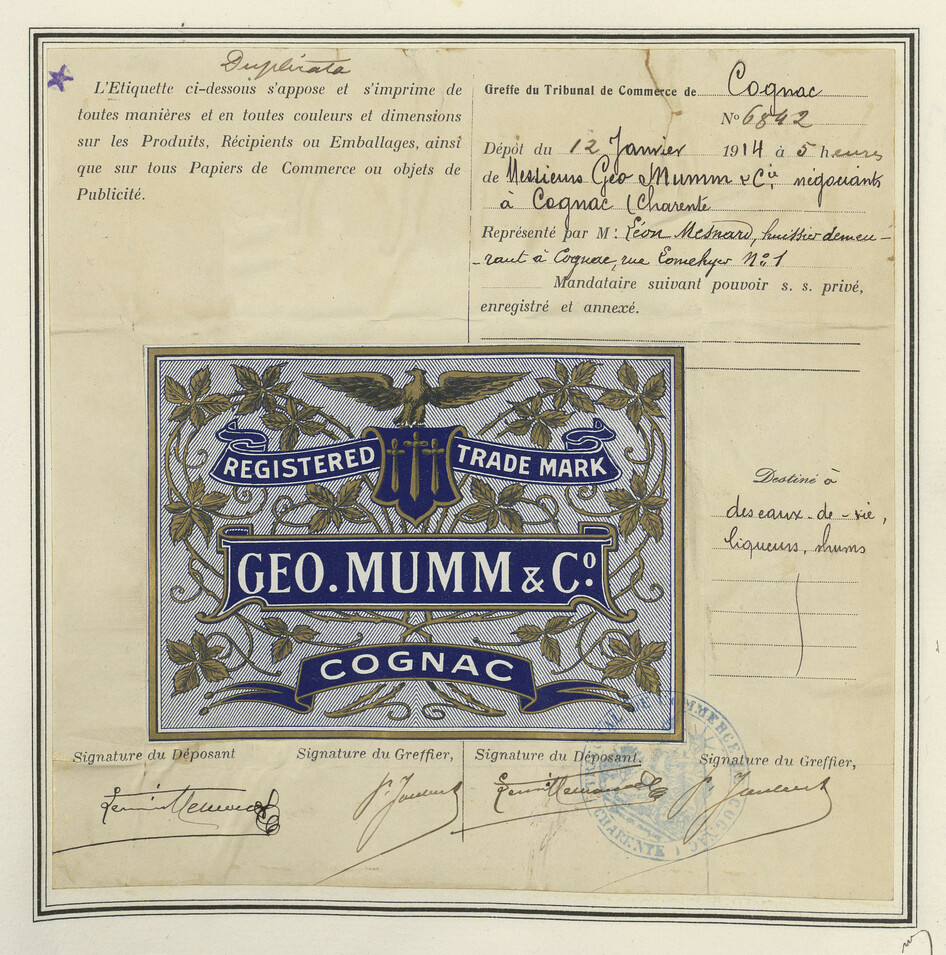 Duplicata
L'Etiquette ci-dessous s'appose et s'imprime de
toutes manières et en toutes couleurs et dimensions
sur les Produits, Récipients ou Emballages, ainsi
que sur tous Papiers de Commerce ou objets de
Publicité.
Greffe du Tribunal de Commerce de Cognac
No 6842
Dépôt du 12 Janvier 1914 à 5 heures
de Messieurs Geo Mumm & Cie, négociants
à Cognac (Charente
Représenté par M : Léon Mesnard, huissier demeu-
-rant à Cognac, rue No 1
Mandataire suivant pouvoir s. s. privé,
enregistré et annexé.
REGISTERED TRADE MARK
GEO. MUMM & Co.
COGNAC
Destiné à
des eaux-de-vie,
liqueurs, rhums
Signature du Déposant
Signature du Greffier,
Signature du Déposant.
Signature du Greffier,
TRIBUNAL DE COMMERCE
COGNAC
CHARENTE